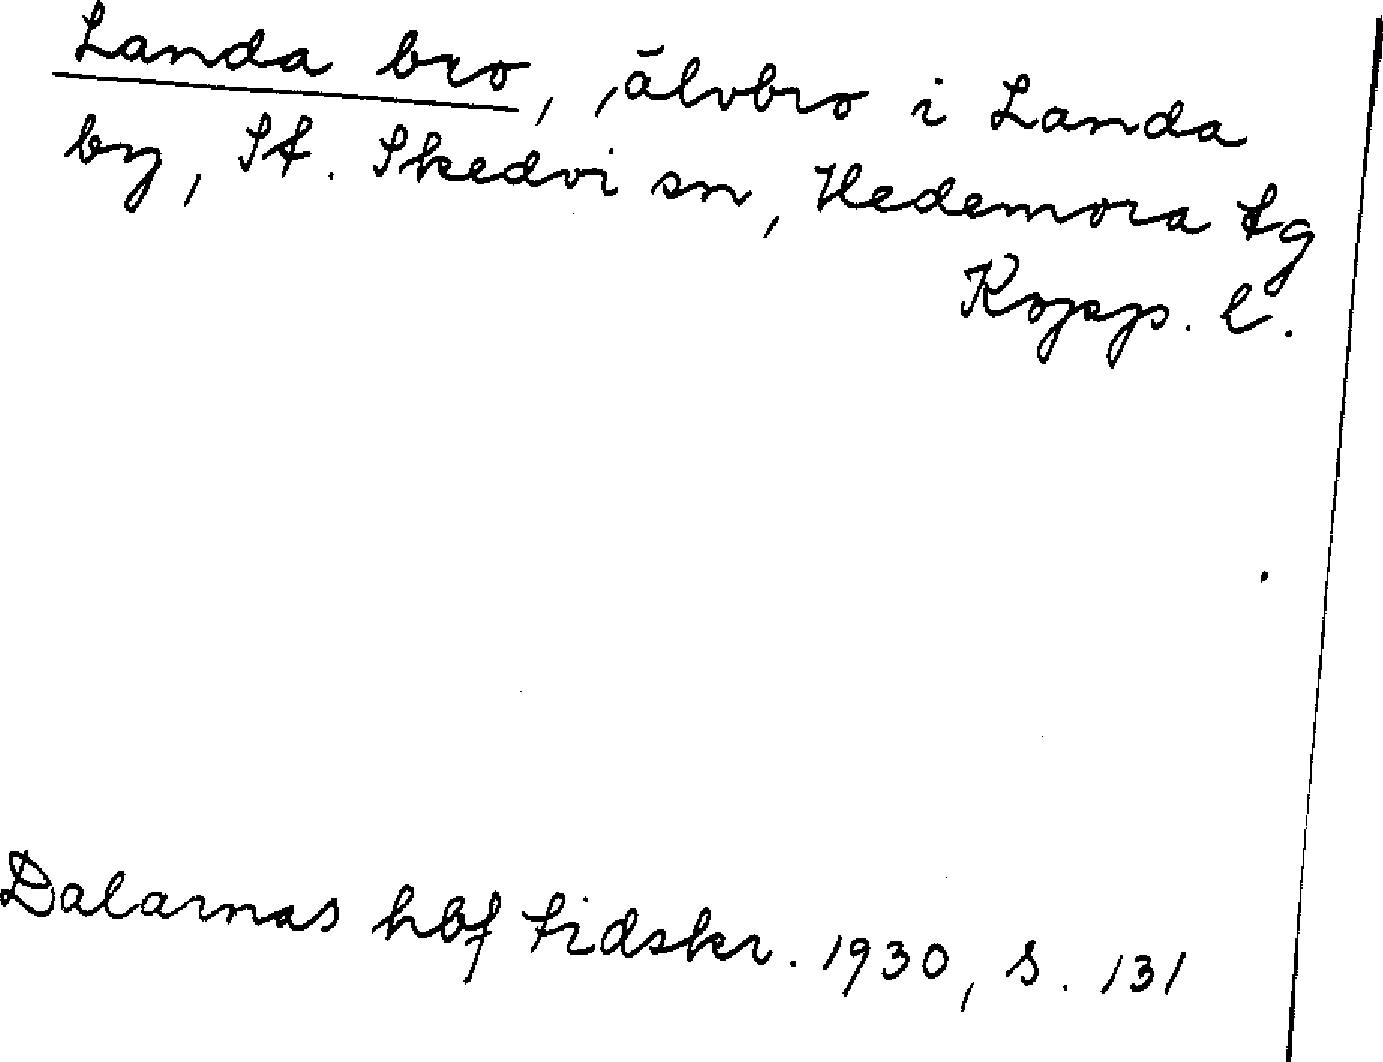 Landa bro, ,älvbro i Landa
by, St. Skedvi sn, Hedemora tg
Kopp. l.
Dalarnas hbf tidskr. 1930, s. 131